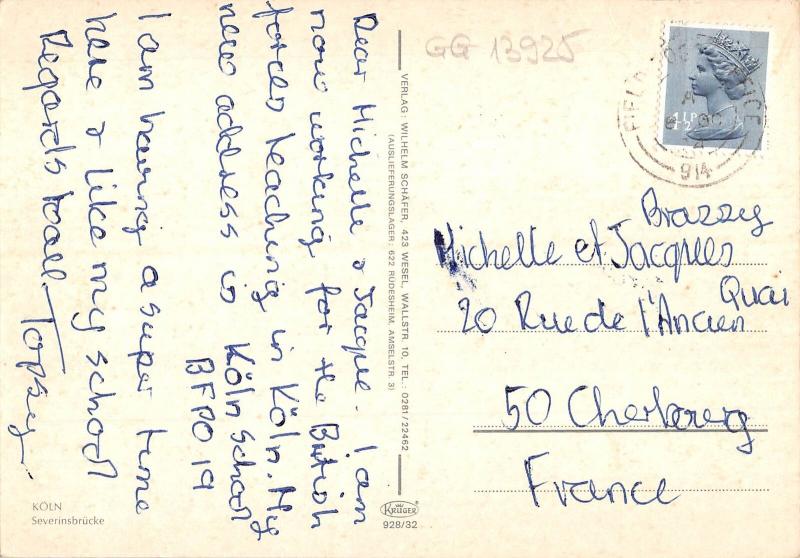 Dear Michelle & Jacque. I am
now working for the British
forces teaching in Köln. My
new address is Köln School
BFPO 19
I am having a super time
here & like my school
Regards to all - Topsy
KÖLN
Severinsbrücke
VERLAG: WILHELM SCHÄFER, 423 WESEL, WALLSTR. 10, TEL.: 0281/22462
(AUSLIEFERUNGSLAGER: 622 RÜDESHEIM, AMSELSTR. 3)
KRÜGER
928/32
GG 13925
4½P
FIELD OFFICE
A
914
Brazzey
Michelle et Jacques
20 Rue de l'Ancien Quai
50 Cherbourg
France